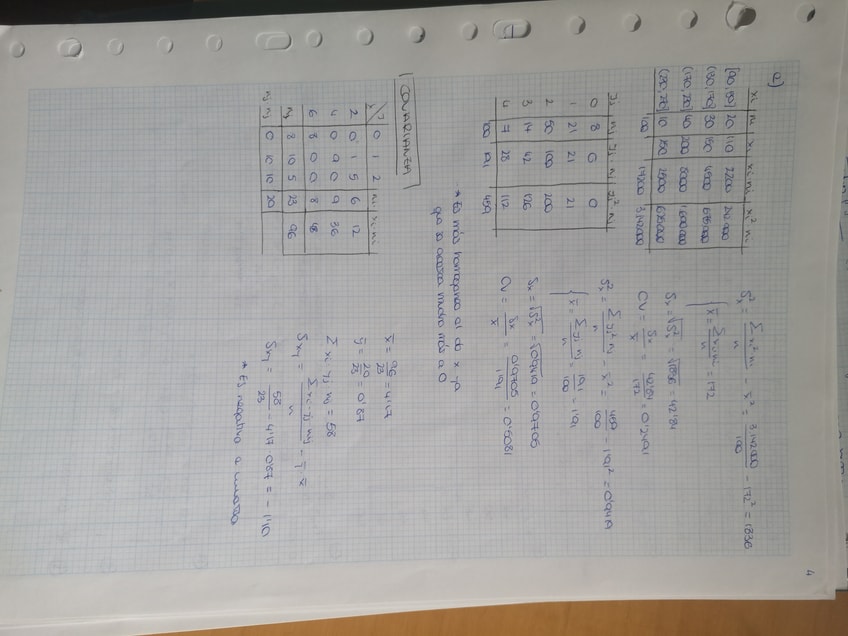 4
e)
xi ni xi xi·ni xi²·ni
[90,130] 20 110 2200 242.000
(130,170] 30 150 4500 675.000
(170,230] 40 200 8000 1.600.000
(230,270] 10 250 2500 625.000
100 17200 3.142.000
S²x = Σ xi² ni / n − x̄² = 3.142.000 / 100 − 172² = 1836
x̄ = Σ xi ni / n = 172
Sx = √S²x = √1836 = 42'84
CV = Sx / x̄ = 42'84 / 172 = 0'2491
yi nj yi·nj yi²·nj
0 8 0 0
1 21 21 21
2 50 100 200
3 14 42 126
4 7 28 112
100 191 459
S²x = Σ yi² nj / n − x̄² = 459 / 100 − 1'91² = 0'9419
x̄ = Σ yi nj / n = 191 / 100 = 1'91
Sx = √S²x = √0'9419 = 0'9705
CV = Sx / x̄ = 0'9705 / 1'91 = 0'5081
* Es más homogéneo el de x ya
que se acerca mucho más a 0
COVARIANZA
0 1 2 ni xi·ni
2 0 1 5 6 12
4 0 9 0 9 36
6 8 0 0 8 48
nj 8 10 5 23 96
0 10 10 20
x̄ = 96 / 23 = 4'17
ȳ = 20 / 23 = 0'87
Σ xi yj nij = 58
Sxy = Σ xi yj nij / n − ȳ · x̄
Sxy = 58 / 23 − 4'17 · 0'87 = − 1'10
* Es negativa e inversa